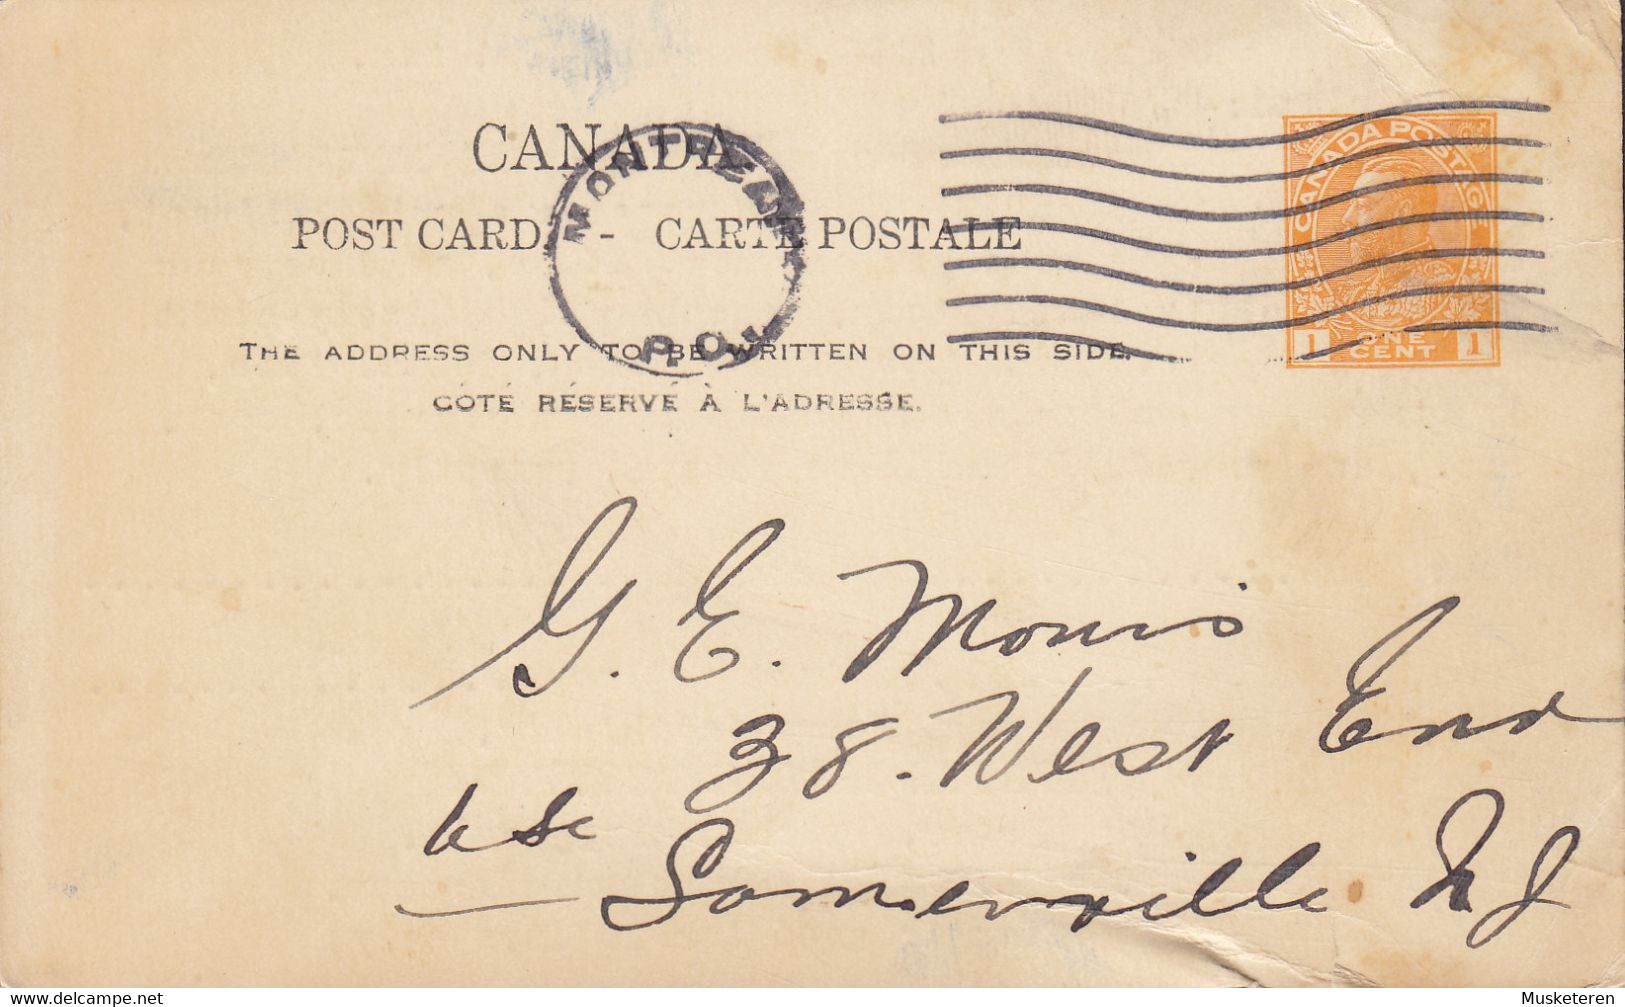 CANADA
POST CARD - CARTE POSTALE
MONTREAL
P.Q.
CANADA POSTAGE
1 ONE CENT 1
THE ADDRESS ONLY TO BE WRITTEN ON THIS SIDE.
CÔTÉ RÉSERVÉ À L'ADRESSE.
G. E. Morris
38. West End
Somerville N J
www.delcampe.net
Musketeren